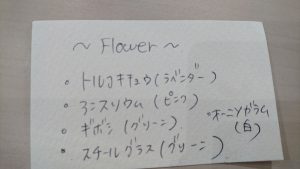 ~ Flower ~
• トルコキキョウ(ラベンダー)
• アンスリウム(ピンク)
• ギボシ(グリーン)
• スチールグラス(グリーン)
• オーニソガラム
(白)